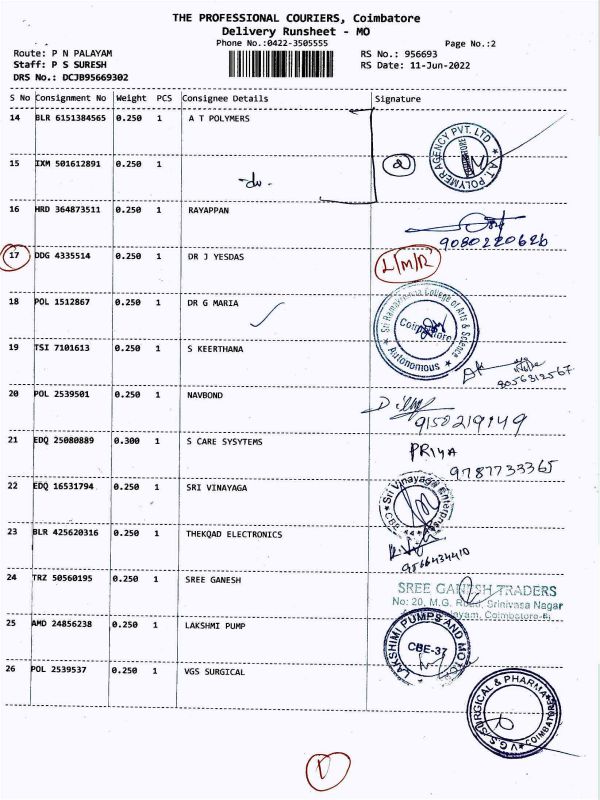 THE PROFESSIONAL COURIERS, Coimbatore
Delivery Runsheet - MO
Phone No.:0422-3505555
Page No.:2
Route: P N PALAYAM
RS No.: 956693
Staff: P S SURESH
RS Date: 11-Jun-2022
DRS No.: DCJB95669302
S No Consignment No Weight PCS Consignee Details Signature
14 BLR 6151384565 0.250 1 A T POLYMERS
A.T. POLYMER AGENCY PVT. LTD
15 IXM 501612891 0.250 1
-do-
2
16 HRD 364873511 0.250 1 RAYAPPAN
9080220626
17 DDG 4335514 0.250 1 DR J YESDAS
L/M/R
18 POL 1512867 0.250 1 DR G MARIA
Sri Ramakrishna College of Arts & Science
Coimbatore
Autonomous
19 TSI 7101613 0.250 1 S KEERTHANA
8056312567
20 POL 2539501 0.250 1 NAVBOND
9150219149
21 EDQ 25080889 0.300 1 S CARE SYSYTEMS
PRIYA
9787733365
22 EDQ 16531794 0.250 1 SRI VINAYAGA
Sri Vinayaga Enterprises
CBE
23 BLR 425620316 0.250 1 THEKQAD ELECTRONICS
9566434410
24 TRZ 50560195 0.250 1 SREE GANESH
SREE GANESH TRADERS
No: 20, M.G. Road, Srinivasa Nagar
Coimbatore
25 AMD 24856238 0.250 1 LAKSHMI PUMP
LAKSHMI PUMPS AND MOTO
CBE-37
26 POL 2539537 0.250 1 VGS SURGICAL
V.G.S. SURGICAL & PHARMA
COIMBATORE
1